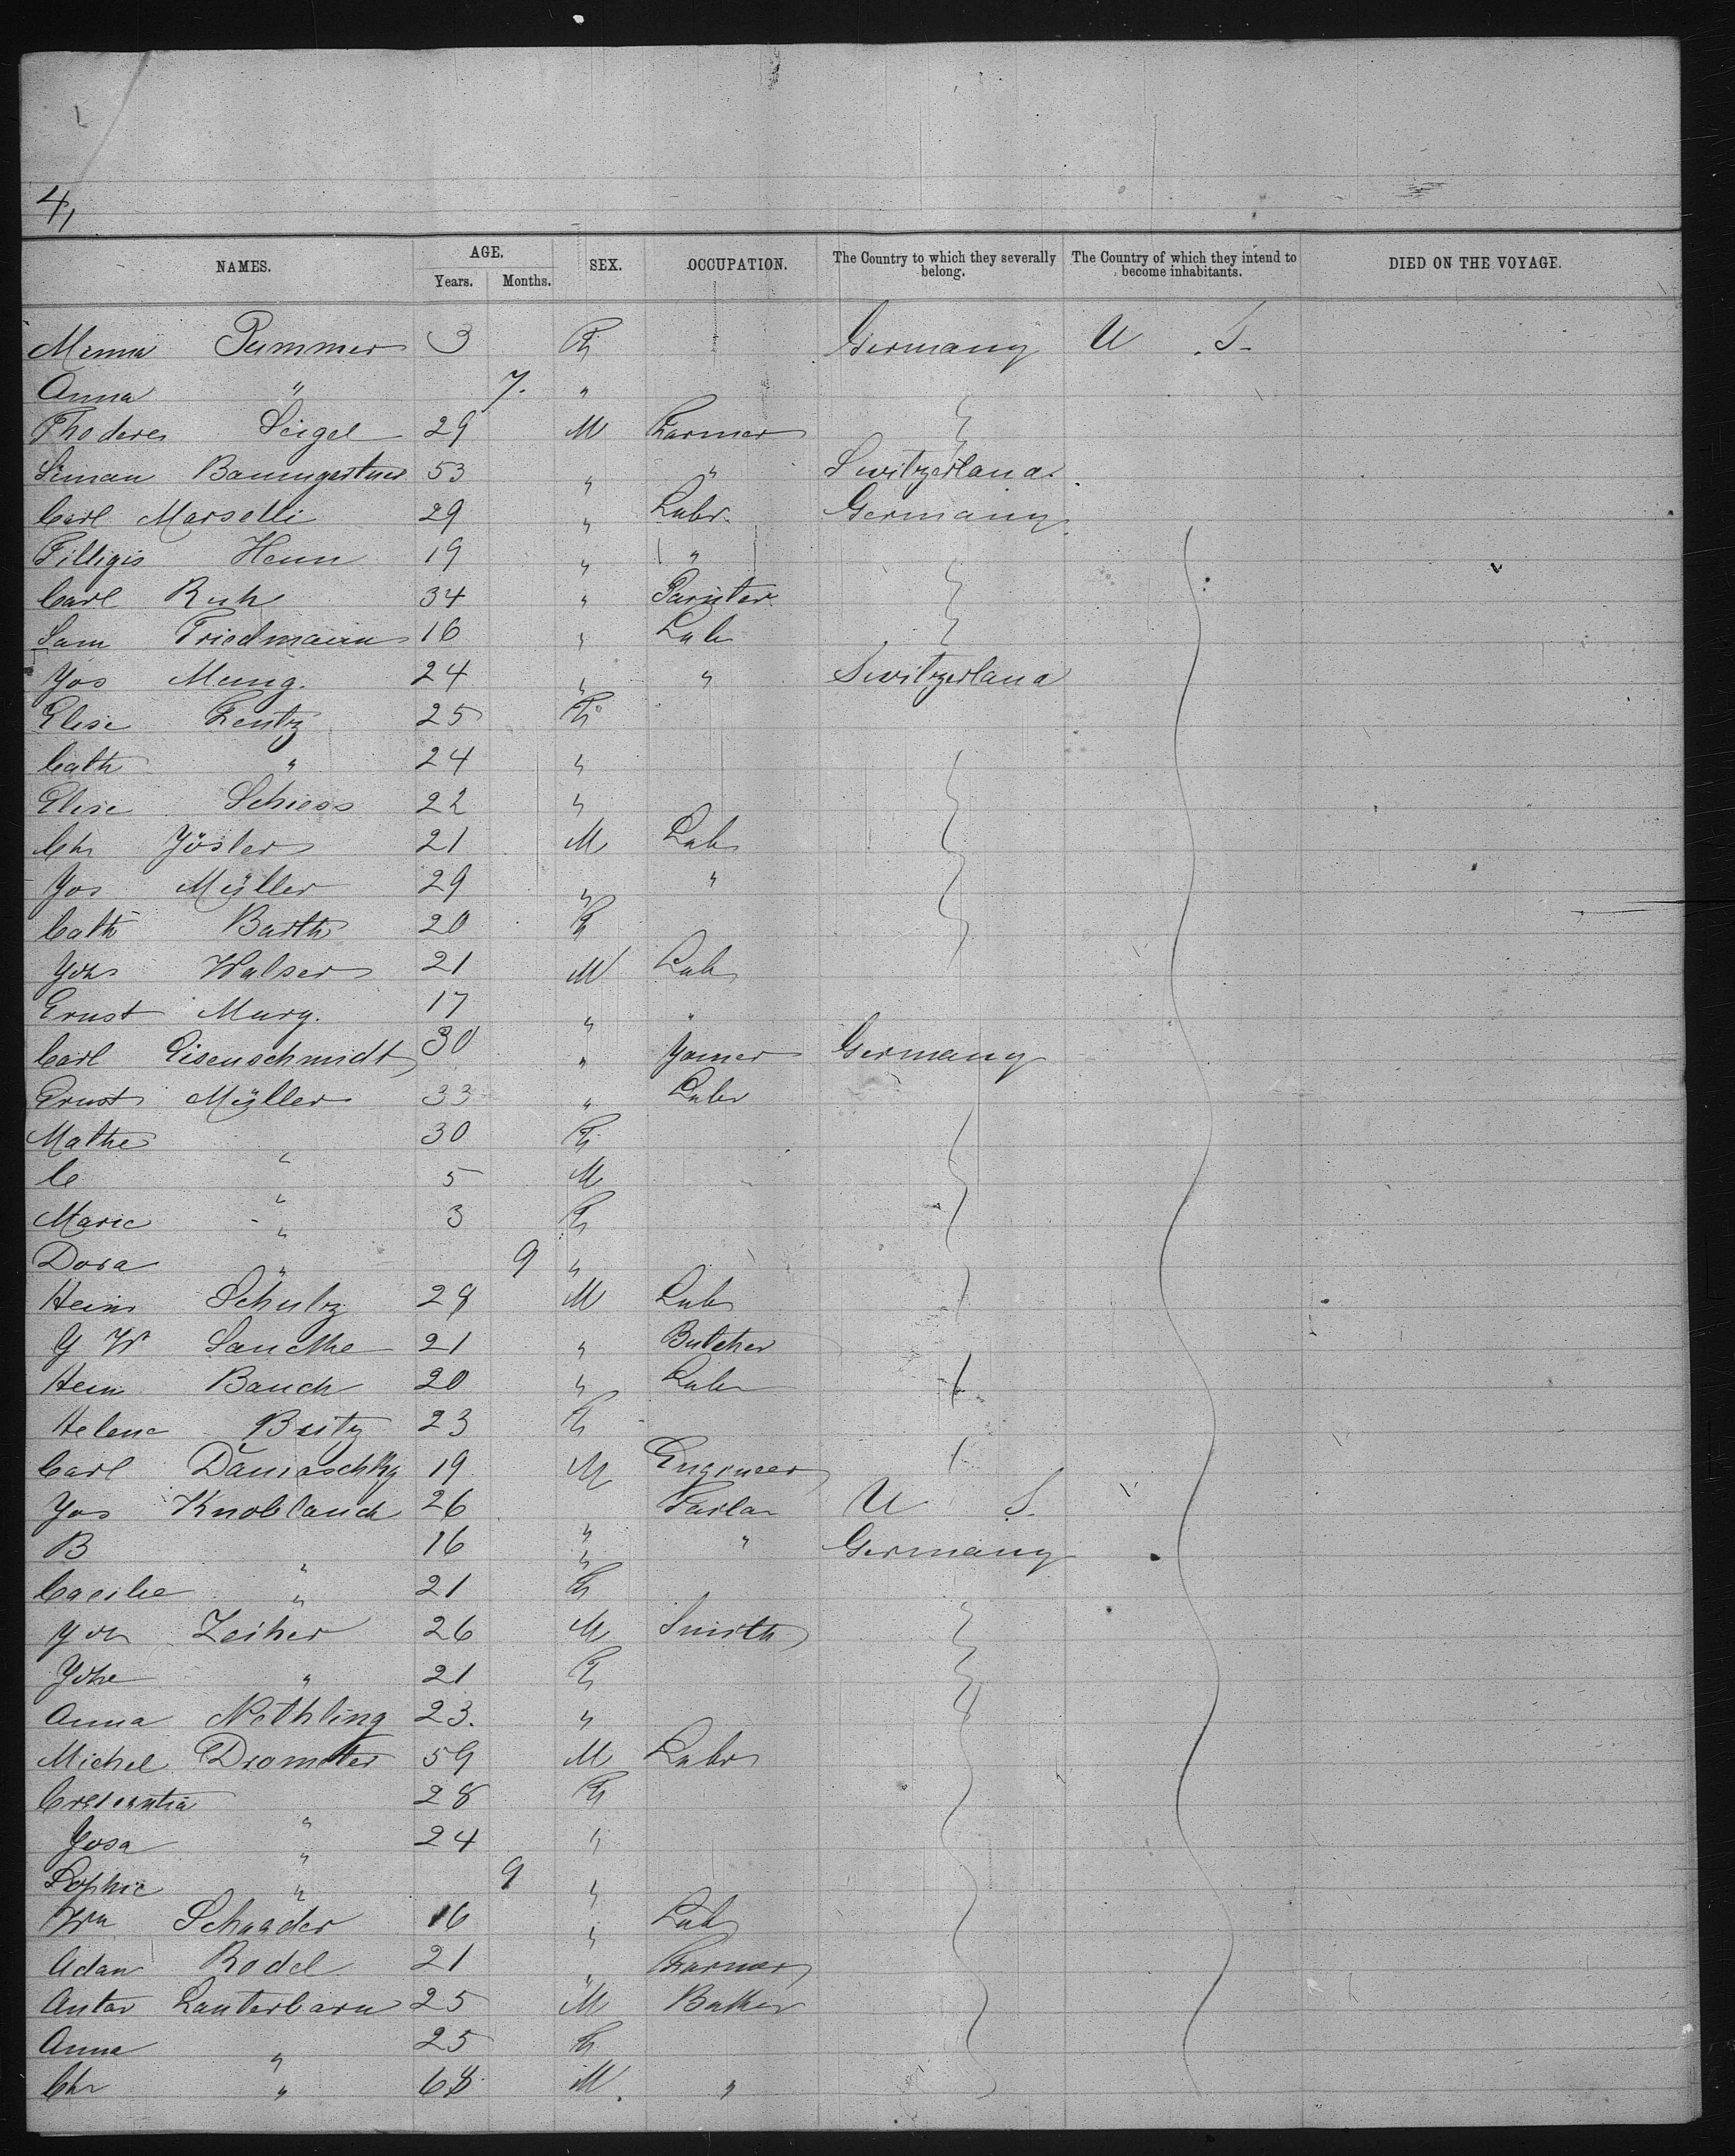 4,
NAMES. AGE. SEX. OCCUPATION. The Country to which they severally belong. The Country of which they intend to become inhabitants. DIED ON THE VOYAGE.
Years. Months.
Minna Pummer 3 F Germany U. S.
Anna " 7. "
Theodere Seigel 29 M Farmer
Siman Baumgartner 53 " " Switzerland
Carl Marselli 29 " Labr. Germany
Filligis Henn 19 " "
Carl Ruh 34 " Painter
Sam Friedmann 16 " Lab
Jos Meing. 24 " " Switzerland
Elise Lentz 25 F
Cath " 24 "
Elise Schiess 22 "
Chr Jösler 21 M Lab
Jos Müller 29 " "
Cath Barth 20 F
Joh Walser 21 M Lab
Ernst Murg. 17 " "
Carl Eisenschmidt 30 " Joiner Germany
Ernst Müller 33 " Labr
Mathe " 30 F
C " 5 M
Marie " 3 F
Dora " 9 "
Hein Schulz 28 M Lab
G W Sancthe 21 " Butcher
Hein Bauch 20 " Lab
Helene Beitz 23 F
Carl Damaschky 19 M Engineer
Jos Knoblauch 26 " Tailor U S.
B " 16 " " Germany
Cacilie " 21 F
Joh Zeiher 26 M Smith
Johe " 21 F
Anna Nethling 23. "
Michel Dromter 59 M Labr
Crescentia " 28 F
Josa " 24 "
Sophie " 9 "
Wm Schrader 16 " Lab
Adam Rodel 21 " Farmer
Anton Lauterbarn 25 M Baker
Anna " 25 F
Chr " 68 M. "